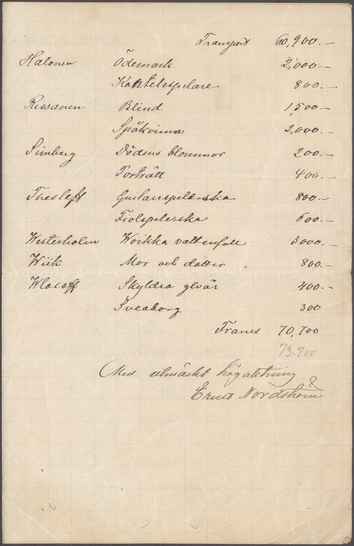 Transport 60,900.—
Halonen Ödemark 2,000.—
Kantelespelare 800.—
Rissanen Blind 1,500.—
Spåkvinna 2,000.—
Simberg Dödens blommor 200.—
Porträtt 400.—
Thesleff Guitarrspelerska 800.—
Fiolspelerska 600.—
Westerholm Woikka vattenfall 3000.—
Wiik Mor och dotter 800.—
Wlasoff Skyldra gevär 400.—
Sveaborg 300
Francs 70,700
73.700
Med utmärkt högaktning
Ernst Nordström